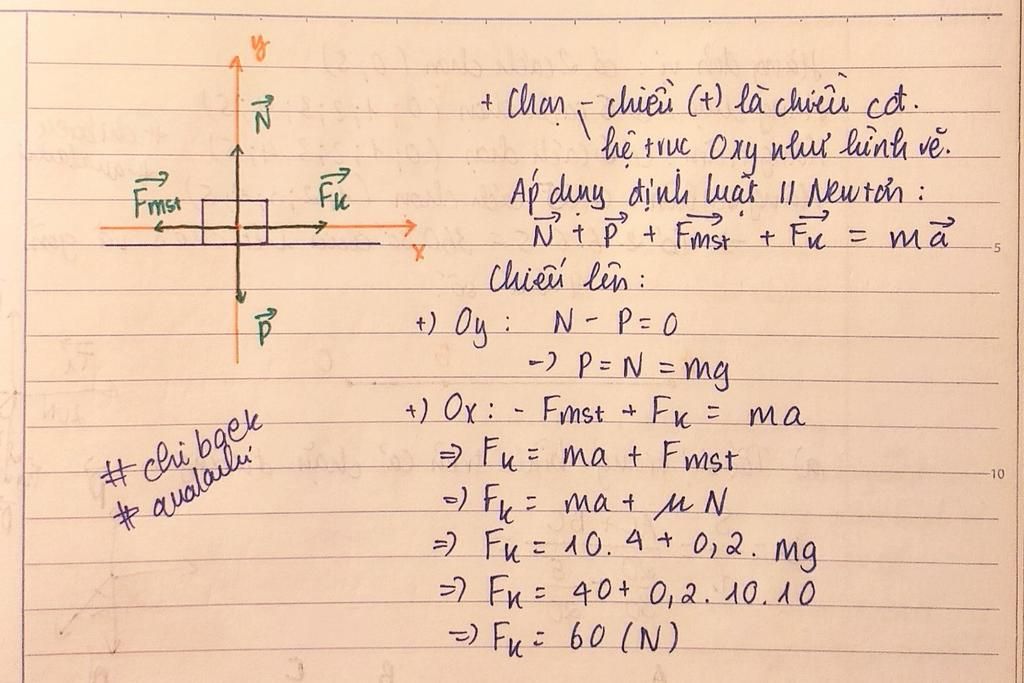 y
N⃗
F⃗mst
F⃗k
x
P⃗
# chibaek
+ Chọn - chiều (+) là chiều cđ.
hệ trục Oxy như hình vẽ.
Áp dụng định luật II Newton :
N⃗ + P⃗ + F⃗mst + F⃗k = ma⃗
Chiếu lên :
+) Oy : N - P = 0
-) P = N = mg
+) Ox : - Fmst + Fk = ma
=) Fk = ma + Fmst
=) Fk = ma + μN
=) Fk = 10. 4 + 0,2. mg
=) Fk = 40 + 0,2. 10.10
=) Fk = 60 (N)
5
10